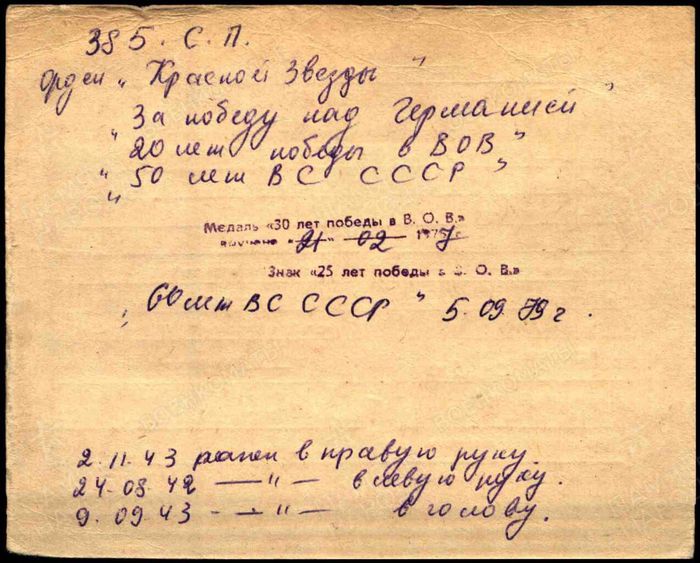 385. С. П.
Орден „Красной Звезды"
„За победу над Германией"
„20 лет победы в ВОВ"
„50 лет ВС СССР"
„
Медаль «30 лет победы в В. О. В.»
вручена «21» 02 197 г
Знак «25 лет победы в В. О. В.»
„60 лет ВС СССР" 5.09.79 г.
2.11.43 ранен в правую руку.
24.08.42 —"— в левую руку.
9.09.43 —"— в голову.